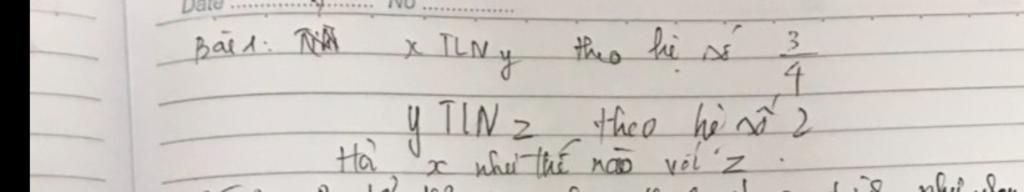 Date ........................ No ................
Bài 1: x TLN y theo hệ số 3/4
y TLN z theo hệ số 2
Hỏi x như thế nào với z.